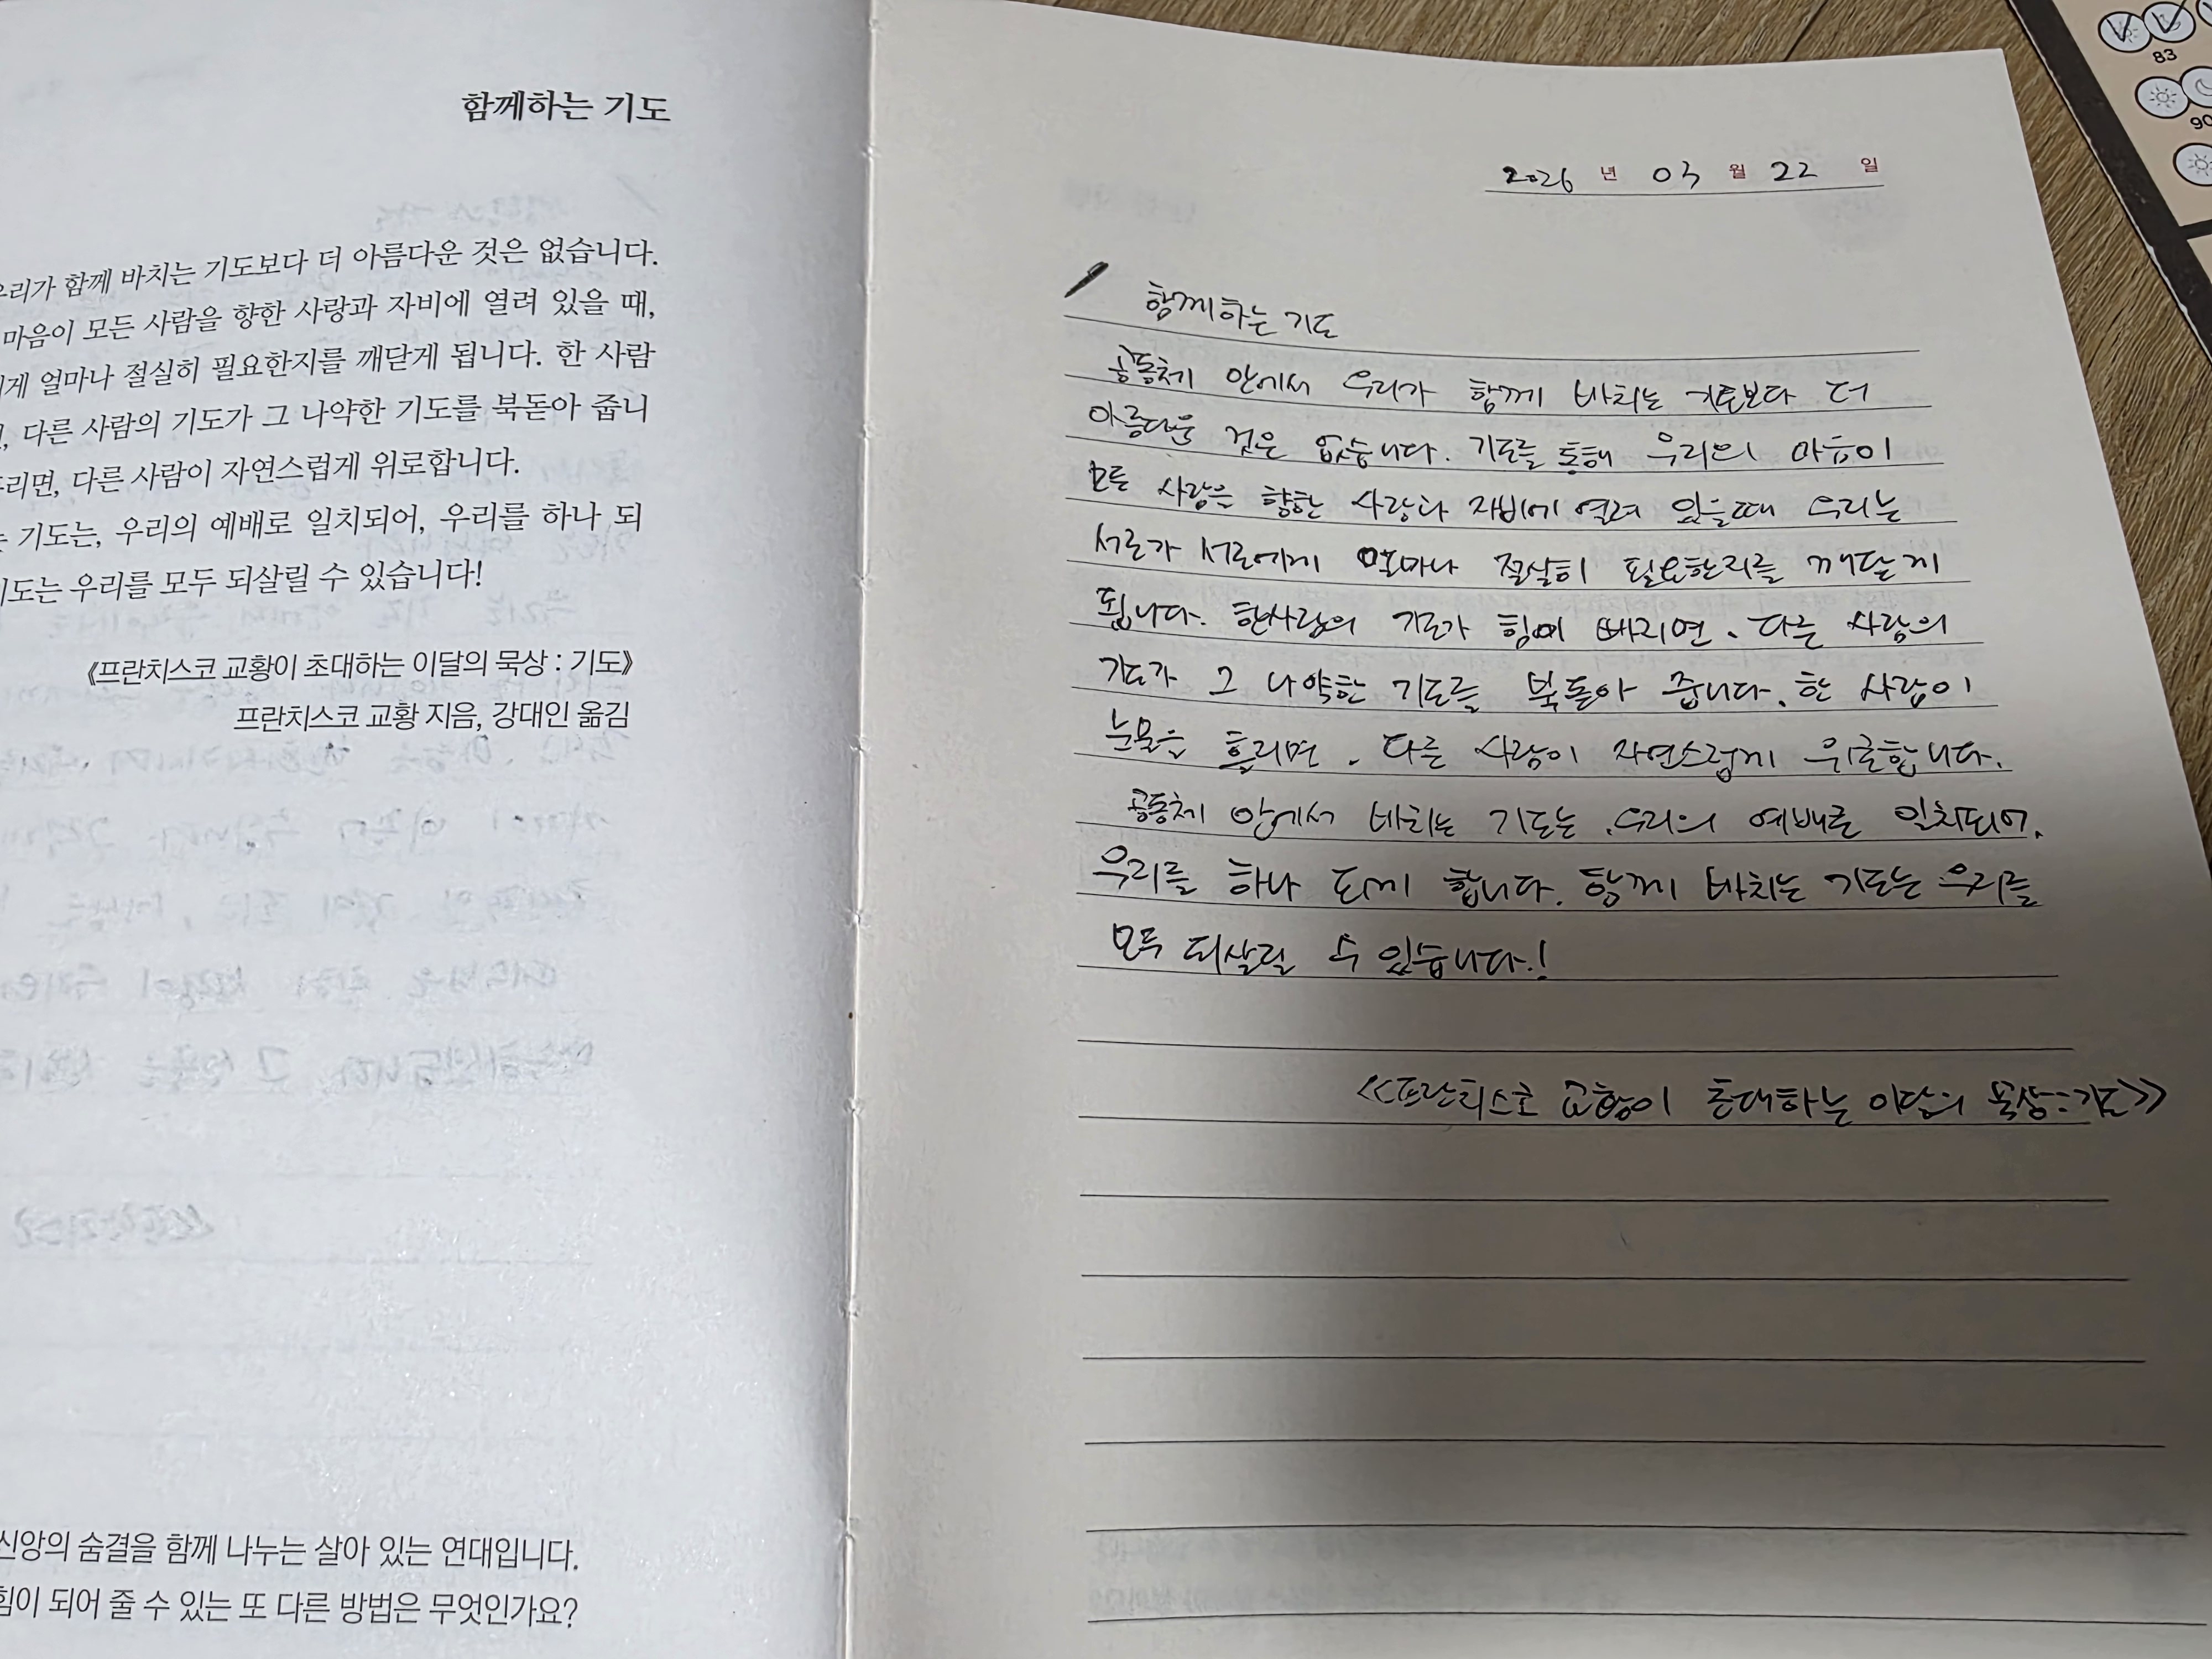 함께하는 기도
우리가 함께 바치는 기도보다 더 아름다운 것은 없습니다.
마음이 모든 사람을 향한 사랑과 자비에 열려 있을 때,
게 얼마나 절실히 필요한지를 깨닫게 됩니다. 한 사람
, 다른 사람의 기도가 그 나약한 기도를 북돋아 줍니
리면, 다른 사람이 자연스럽게 위로합니다.
는 기도는, 우리의 예배로 일치되어, 우리를 하나 되
기도는 우리를 모두 되살릴 수 있습니다!
《프란치스코 교황이 초대하는 이달의 묵상 : 기도》
프란치스코 교황 지음, 강대인 옮김
신앙의 숨결을 함께 나누는 살아 있는 연대입니다.
힘이 되어 줄 수 있는 또 다른 방법은 무엇인가요?
2026 년 03 월 22 일
함께하는 기도
공동체 안에서 우리가 함께 바치는 기도보다 더
아름다운 것은 없습니다. 기도를 통해 우리의 마음이
모든 사람을 향한 사랑과 자비에 열려 있을때 우리는
서로가 서로에게 얼마나 절실히 필요한지를 깨닫게
됩니다. 한사람의 기도가 힘이 빠지면, 다른 사람의
기도가 그 나약한 기도를 북돋아 줍니다. 한 사람이
눈물을 흘리면, 다른 사람이 자연스럽게 위로합니다.
공동체 안에서 바치는 기도는, 우리의 예배로 일치되어,
우리를 하나 되게 합니다. 함께 바치는 기도는 우리를
모두 되살릴 수 있습니다.!
<<프란치스코 교황이 초대하는 이달의 묵상:기도>>
83
90